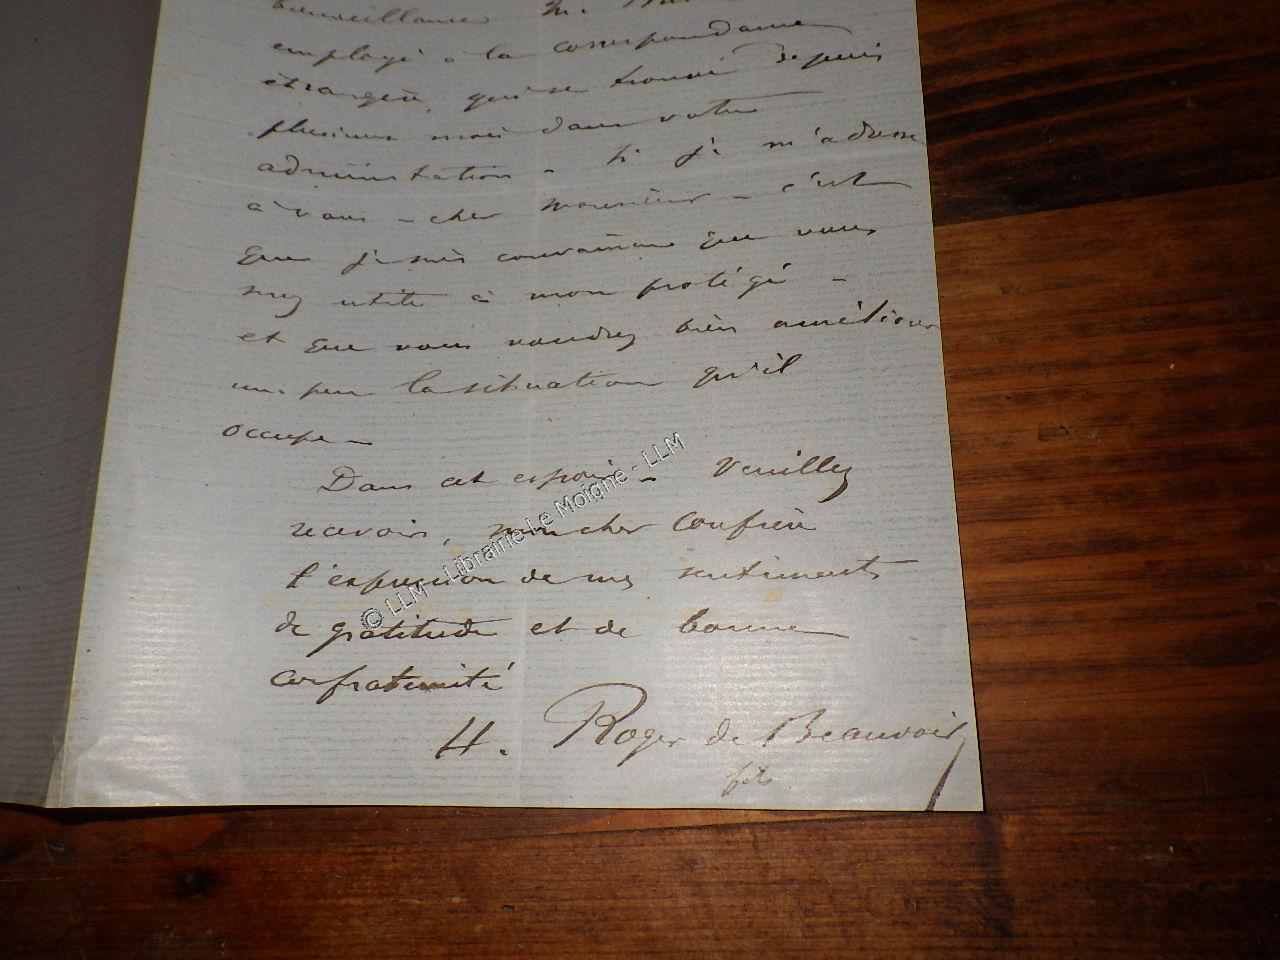 bienveillance M.
employé à la correspondance
étrangère, qui se trouve depuis
plusieurs mois dans votre
administration - Si je m'adresse
à vous - cher monsieur - c'est
que je suis convaincu que vous
serez utile à mon protégé -
et que vous voudrez bien améliorer
un peu la situation qu'il
occupe -
Dans cet espoir - Veuillez
recevoir, mon cher confrère
l'expression de mes sentiments
de gratitude et de bonne
confraternité
H. Roger de Beauvoir
fils
© LLM - Librairie Le Moigne - LLM